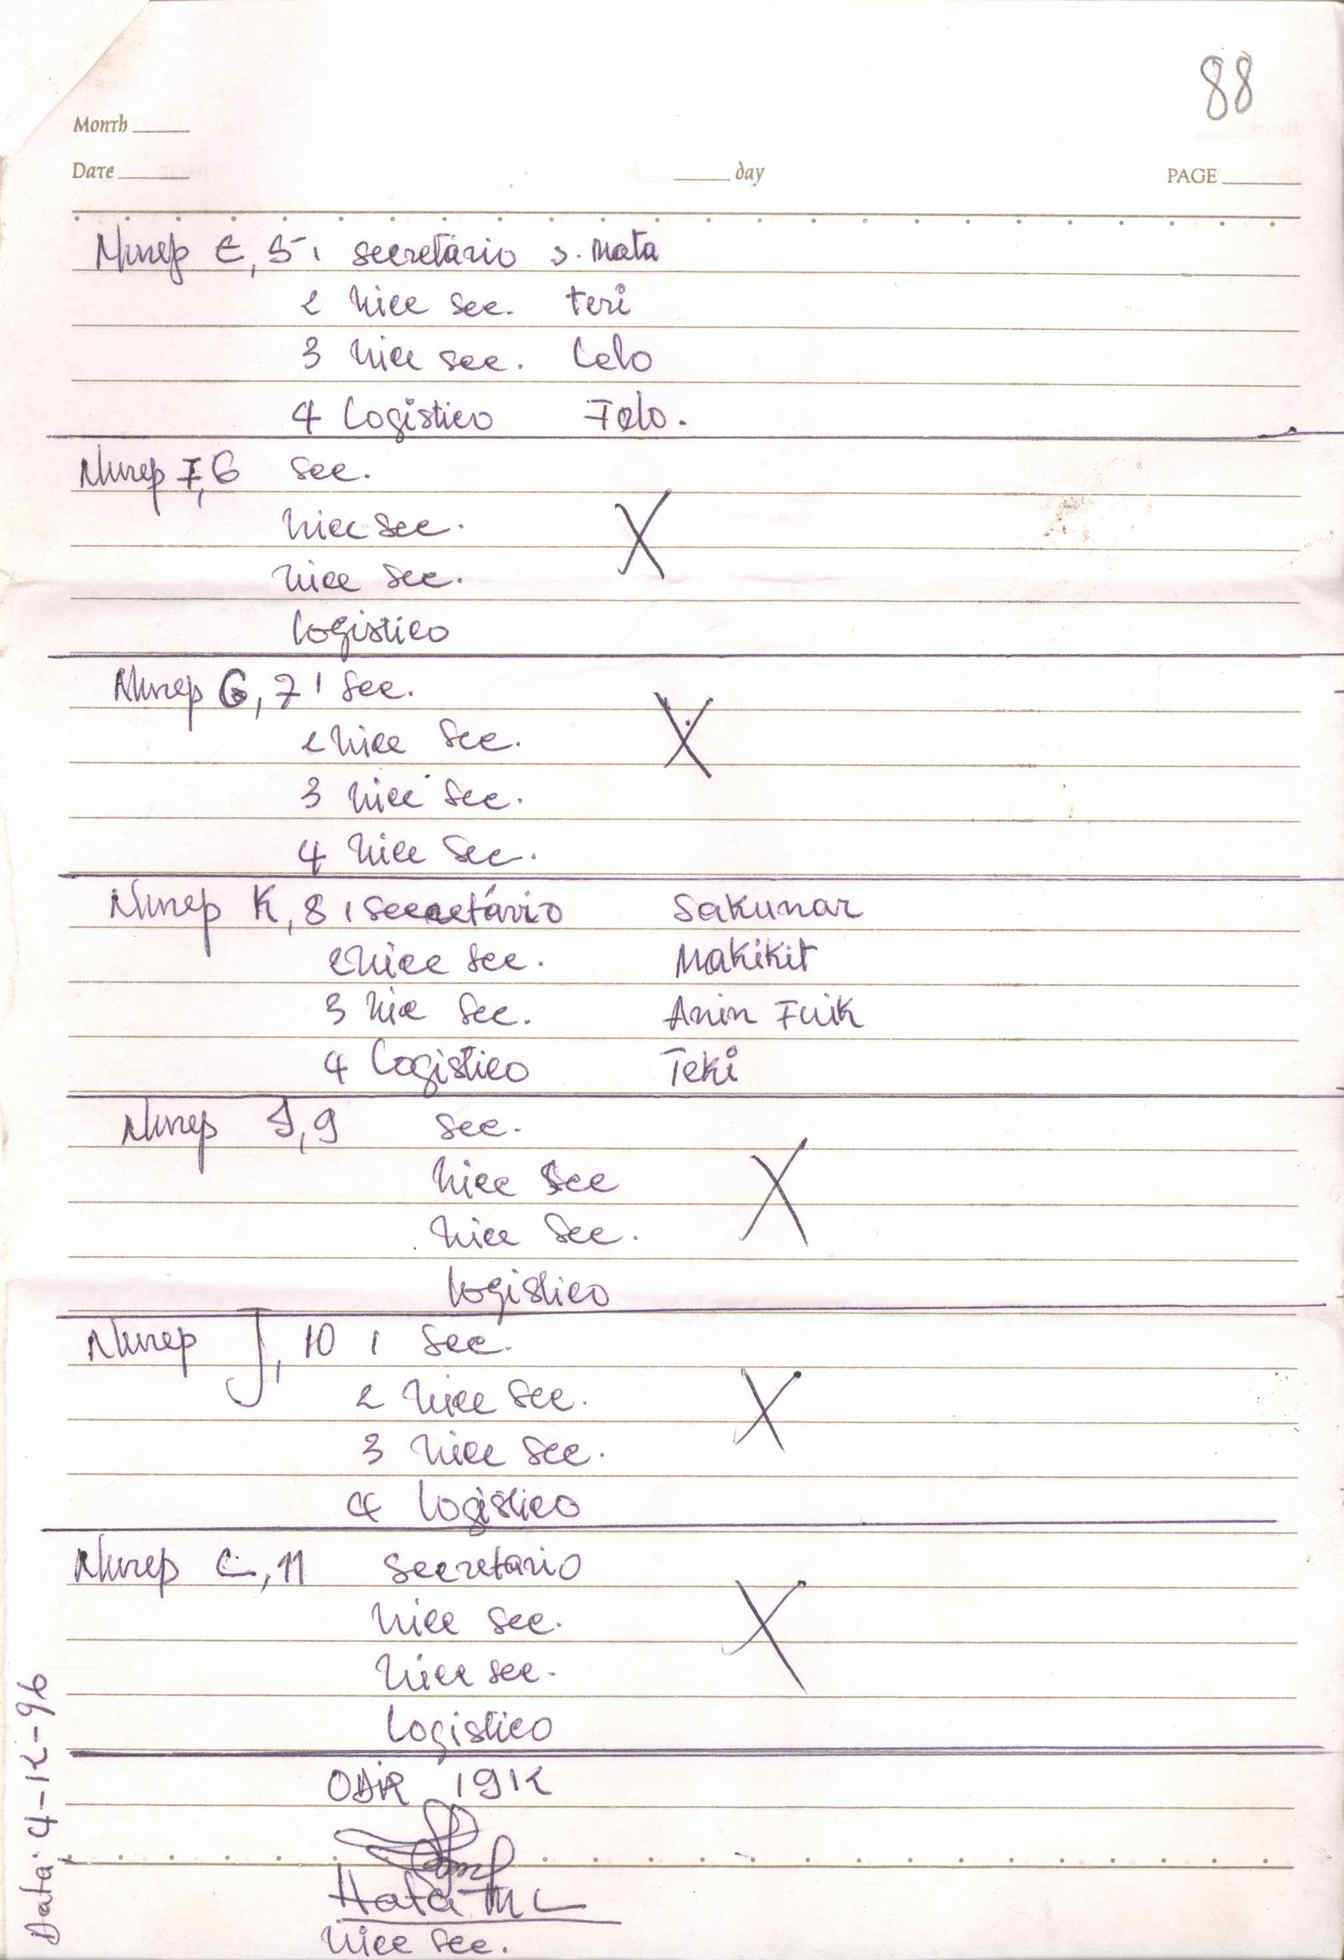 88
Month
Date day PAGE
Nurep E, 5 1 secretário s. Mata
2 Vice sec. Teri
3 Vice sec. Lelo
4 Logistico Folo.
Nurep F, 6 sec.
Vice sec.
Vice sec.
Logistico
X
Nurep G, 7 1 sec.
2 Vice sec.
3 Vice sec.
4 Vice sec.
X
Nurep K, 8 1 secretário Sakunar
2 Vice sec. Makikit
3 Vice sec. Anin Fuik
4 Logistico Teki
Nurep I, 9 sec.
Vice sec
Vice sec.
Logistico
X
Nurep J, 10 1 sec.
2 Vice sec.
3 Vice sec.
4 Logistico
X
Nurep C, 11 secretario
Vice sec.
Vice sec.
Logistico
X
ODIR 1912
Vice sec.
Data: 4-12-96